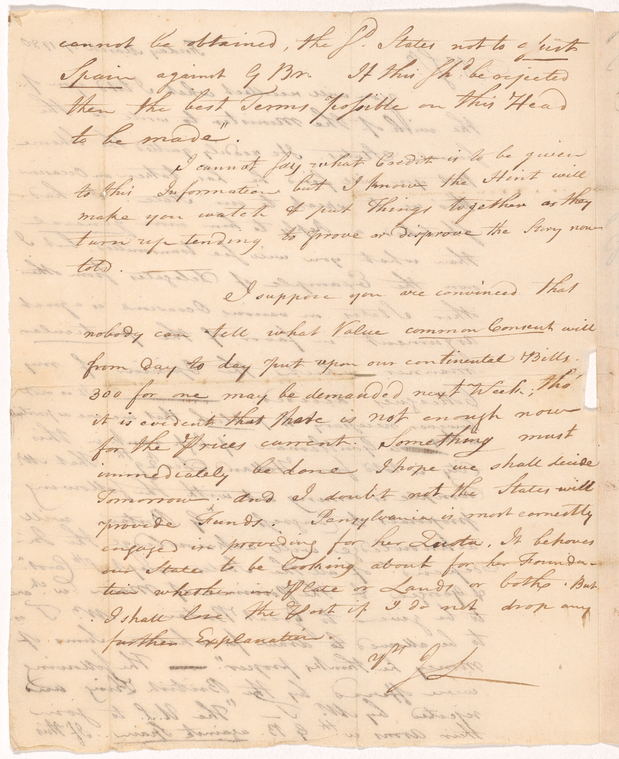 cannot be obtained, the sd. States not to assist
Spain against G Br. If this shd. be rejected
then the best Terms possible on this Head
to be made".
I cannot say what Credit is to be given
to this Information but I know the Hint will
make you watch & put things together as they
turn up tending to prove or disprove the Story now
told.
I suppose you are convinced that
nobody can tell what Value common Consent will
from day to day put upon our continental Bills.
300 for one may be demanded next Week, tho'
it is evident that there is not enough now
for the Prices current. Something must
immediately be done I hope we shall decide
Tomorrow. and I doubt not the States will
provide Funds. Pensylvania is most earnestly
engaged in providing for her Quota. It behoves
our State to be looking about for her Founda-
tion whether in Plate or Lands or both. But
I shall lose the Post if I do not drop any
further Explanation.
Yrs JL